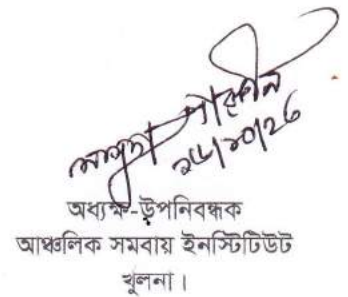 পারভীন
অধ্যক্ষ-উপনিবন্ধক
আঞ্চলিক সমবায় ইনস্টিটিউট
খুলনা।